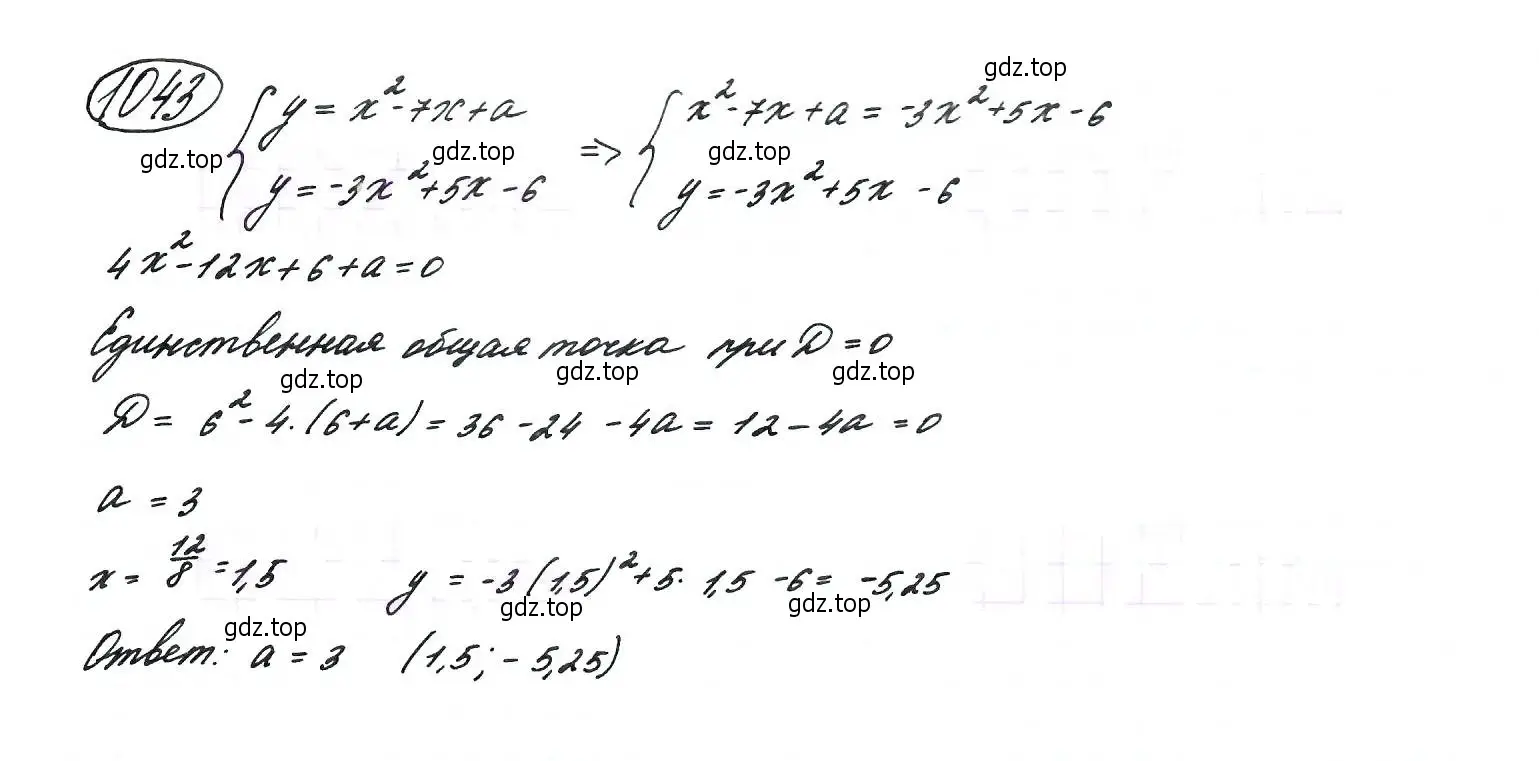 1043
gdz.top
y = x² - 7x + a
x² - 7x + a = -3x² + 5x - 6
gdz.top
gdz.top
=>
gdz.top
y = -3x² + 5x - 6
y = -3x² + 5x - 6
4x² - 12x + 6 + a = 0
Единственная общая точка при D = 0
gdz.top
gdz.top
gdz.top
D = 6² - 4·(6+a) = 36 - 24 - 4a = 12 - 4a = 0
a = 3
x = 12/8 = 1,5
y = -3(1,5)² + 5· 1,5 - 6 = -5,25
gdz.top
gdz.top
gdz.top
Ответ: a = 3 (1,5; -5,25)